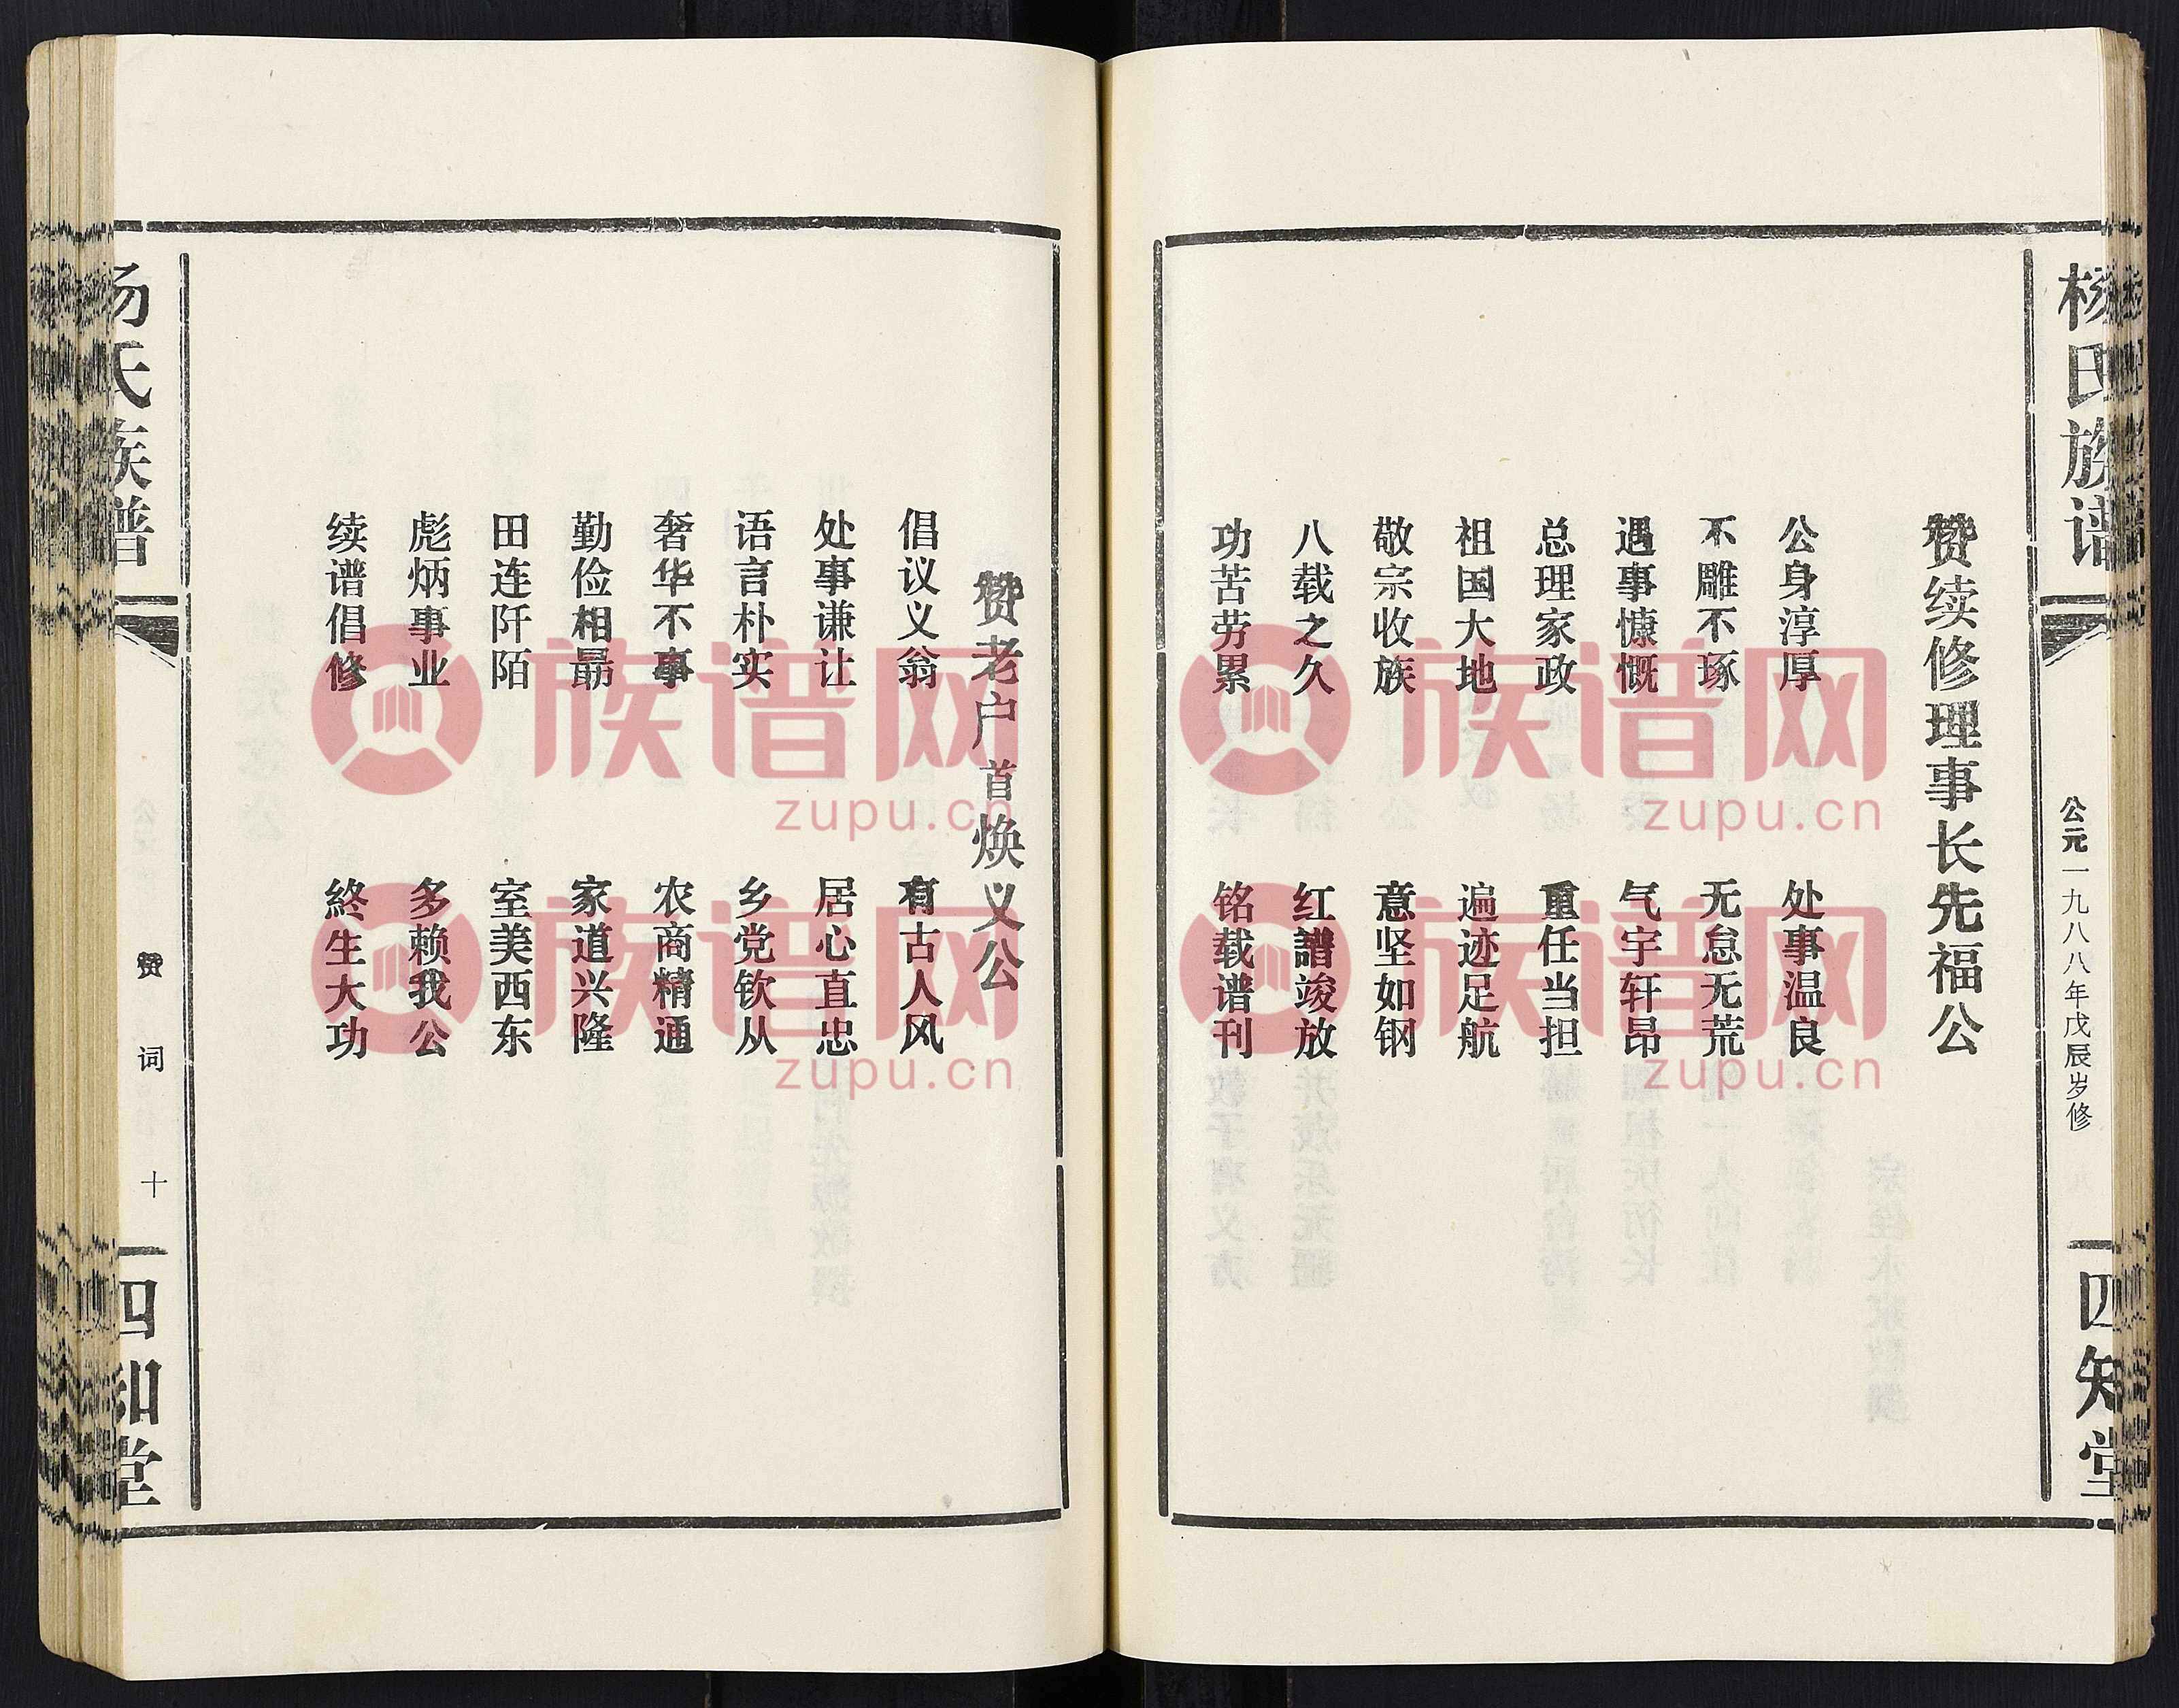 杨氏族谱
公元一九八八年戊辰岁修
四知堂
赞续修理事长先福公
公身淳厚 处事温良
不雕不琢 无怠无荒
遇事慷慨 气宇轩昂
总理家政 重任当担
祖国大地 遍迹足航
敬宗收族 意坚如钢
八载之久 红譜竣放
功苦劳累 铭载谱刊
赞老户首焕义公
倡议义翁 有古人风
处事谦让 居心直忠
语言朴实 乡党钦从
奢华不事 农商精通
勤俭相勗 家道兴隆
田连阡陌 室美西东
彪炳事业 多赖我公
续谱倡修 終生大功
杨氏族谱
赞词 十
四知堂
族谱网
zupu.cn
族谱网
zupu.cn
族谱网
zupu.cn
族谱网
zupu.cn